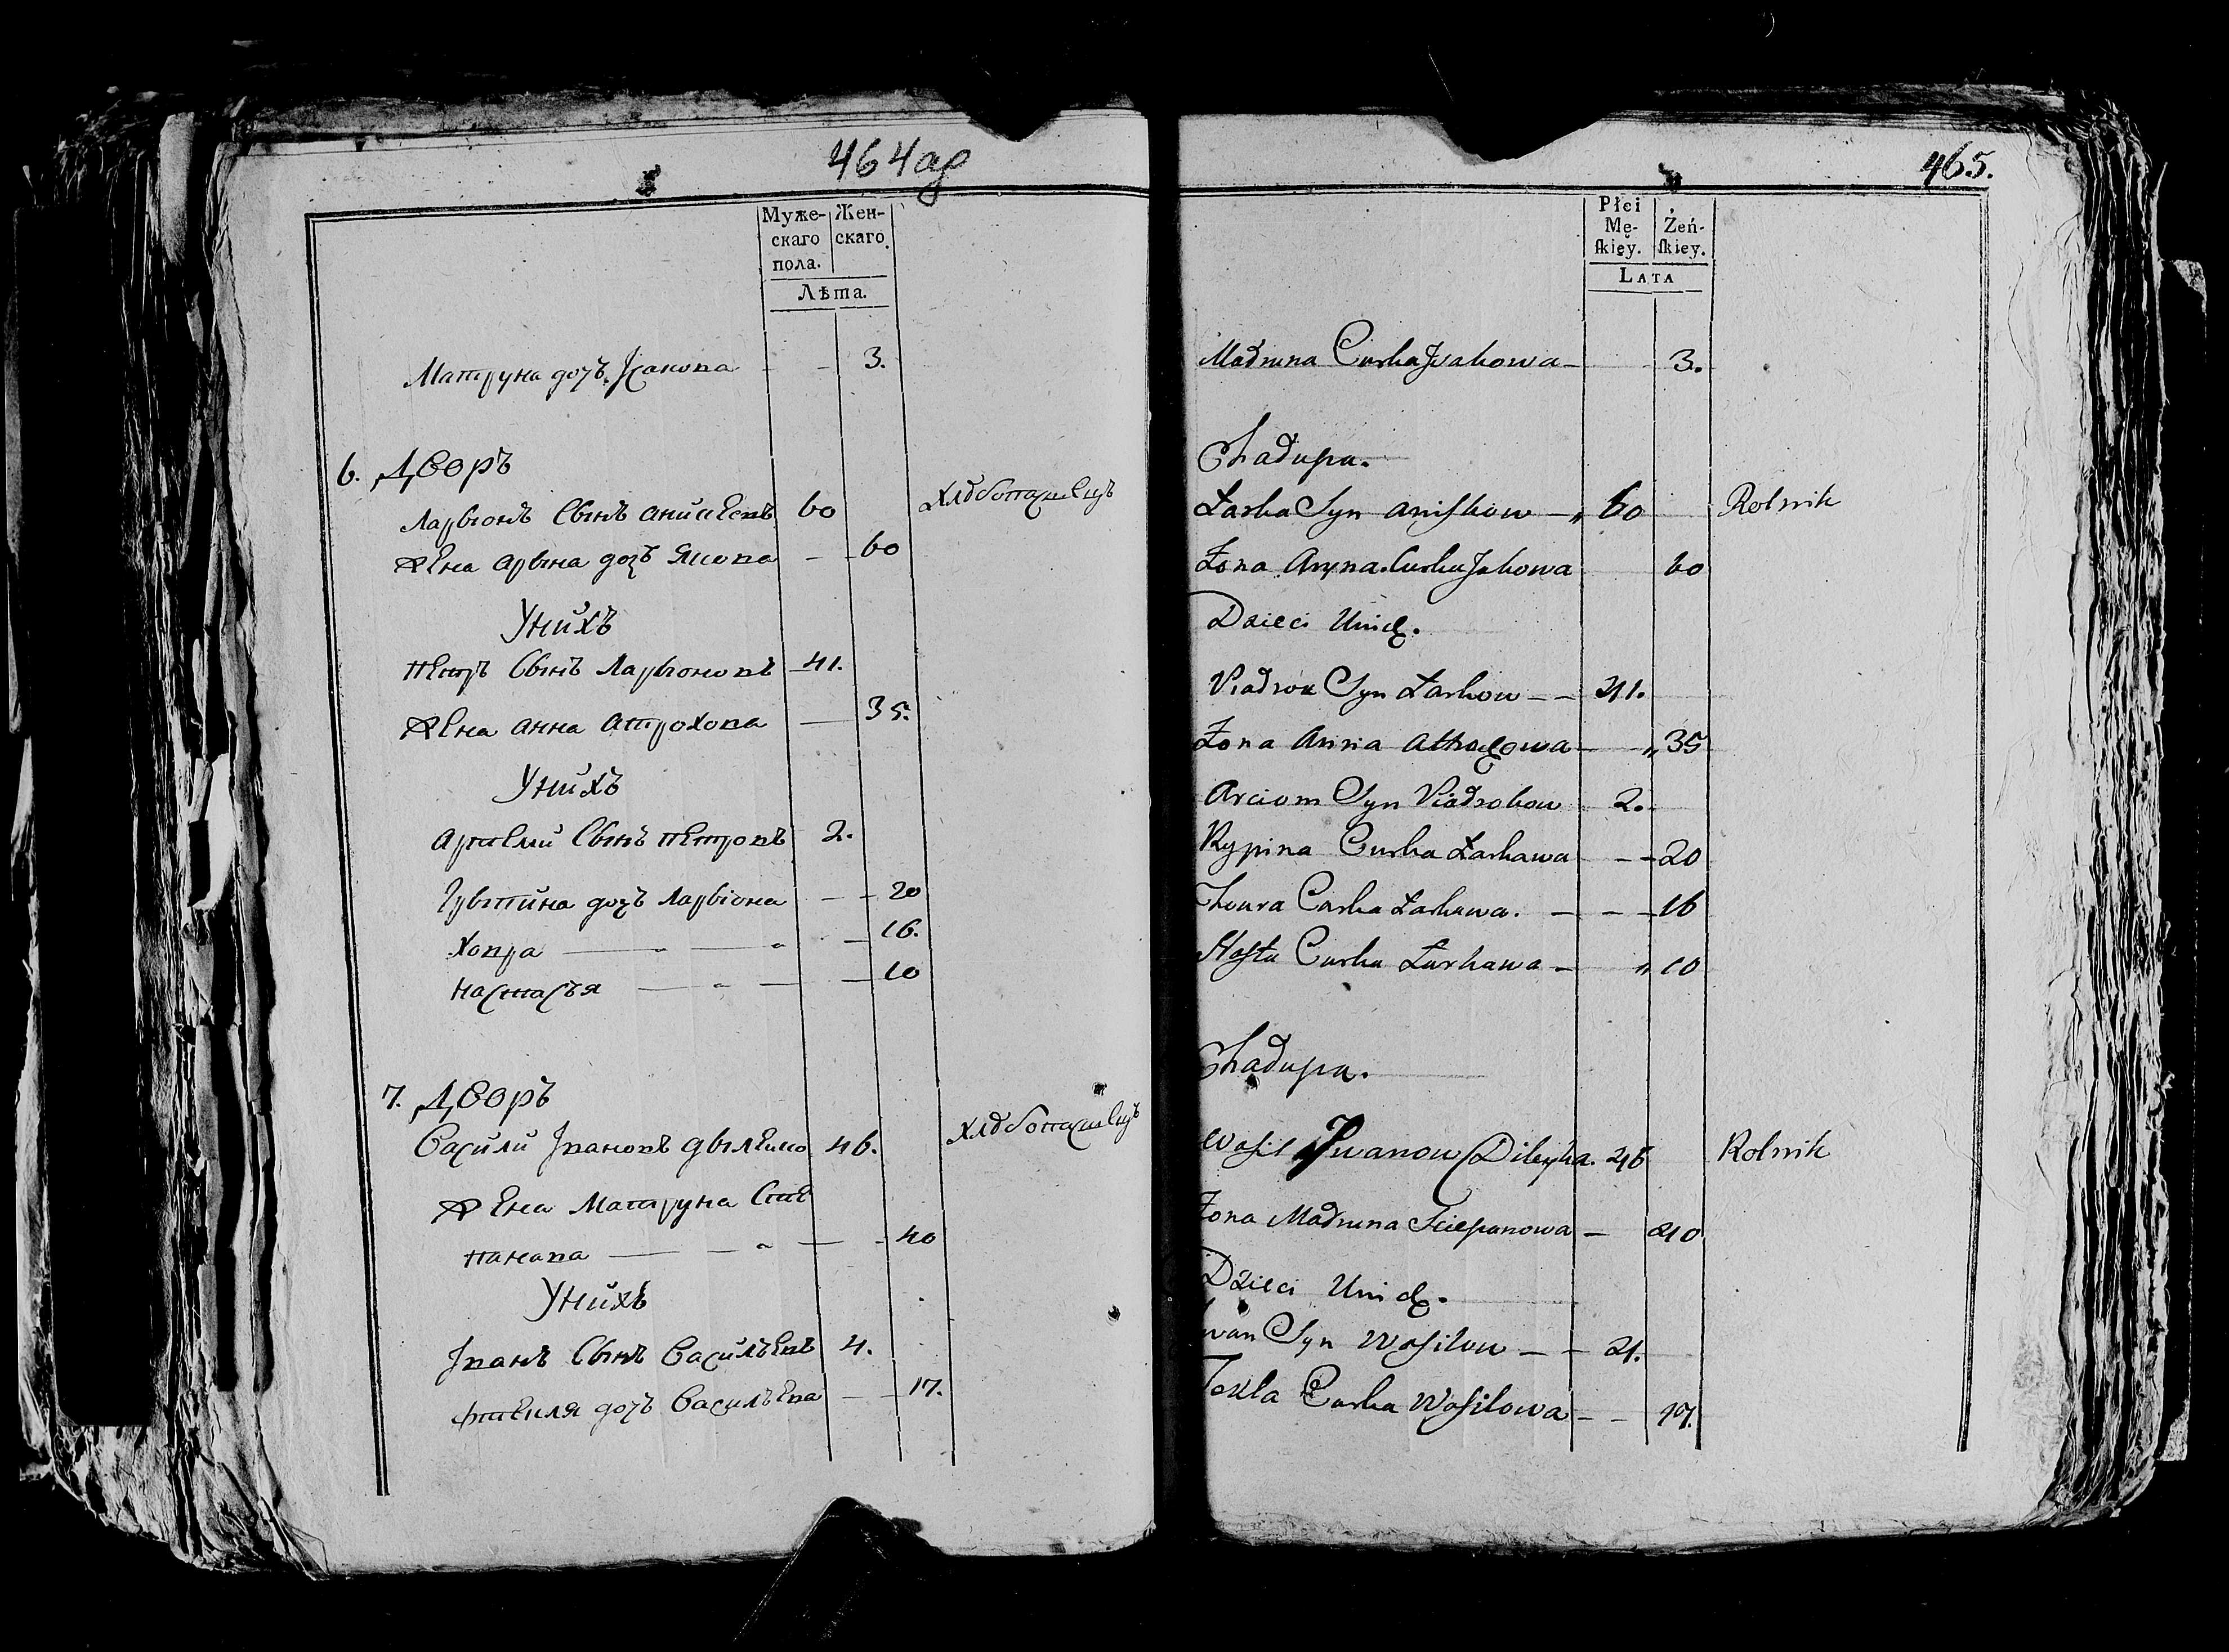 464 об
Муже-
скаго
пола.
Жен-
скаго.
Лѣта.
Матруна дочъ Исакова - - 3.
6. Дворъ
Ларіонъ Сынъ анискевъ 60 хлѣбопашецъ
жена арына дочъ Якова - - 60
Унихъ
петръ Сынъ Ларіоновъ 41.
жена анна атрохова — 35.
Унихъ
артеми Сынъ петровъ 2.
дочъ Ларіона - - 20
Ховра — " — " — 16.
настасъя — " — — 10
7. Дворъ
Васили Івановъ дылейко 46. хлѣбопашецъ
жена Матруна Сте
панава — — " — - 40
Унихъ
Іванъ Сынъ Василъевъ 4.
фтекля дочъ Василъева — - 17.
465.
Płci
Mę-
skiey.
Żeń-
skiey.
LATA
Madruna Curka Isakowa — 3.
Chadupa.
Łarka Syn aniskow — „ 60 Rolnik
Żona Aryna Curka Jakowa 60
Dzieci Unich.
Piadrok Syn Łarkow — — 41.
Żona Anna Atrachowa — „ 35
Arciom Syn Piadrokow 2.
Rypina Curka Larkawa — — 20
Chowra Curka Łarkawa. — — — 16
Nasta Curka Łarkawa — „ 10
Chadupa.
Wasil Jwanow Dileyka. 46 Rolnik
Żona Madruna Sciepanowa — 40
Dzieci Unich.
Iwan Syn Wasilow — — 4.
Texla Curka Wasilowa — — 17.